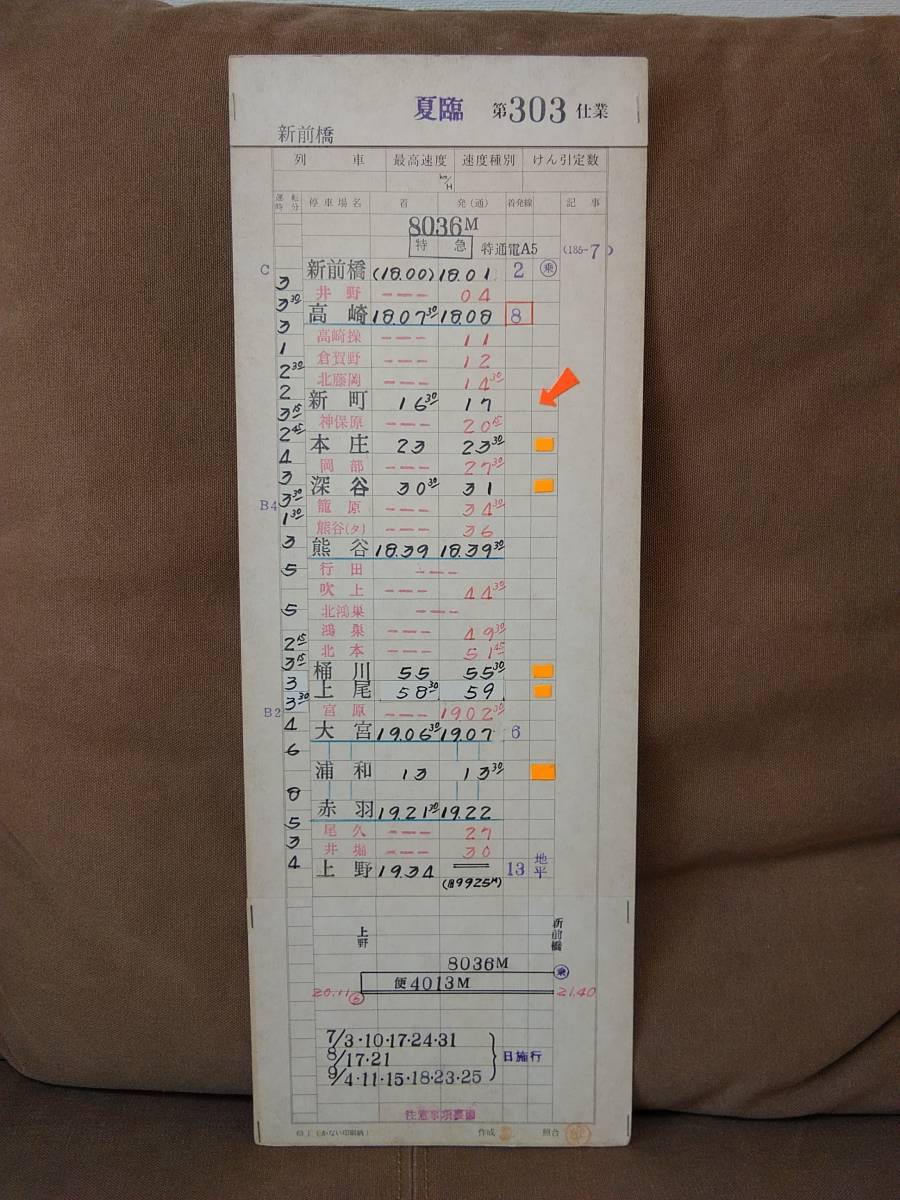 夏臨 第303仕業
新前橋
列車 最高速度 速度種別 けん引定数
km/H
運転時分 停車場名 着 発(通) 着発線 記事
8036M
特急 特通電A5 (185-7)
C 新前橋 (18.00) 18.01 2 乗
3
井野 --- 04
3 30
高崎 18.07 30 18.08 8
3
高崎操 --- 11
1
倉賀野 --- 12
2 30
北藤岡 --- 14 30
2
新町 16 30 17
3 15
神保原 --- 20 15
2 45
本庄 23 23 30
4
岡部 --- 27 30
3
深谷 30 30 31
3 30
B4 籠原 --- 34 30
1 30
熊谷(タ) --- 36
3
熊谷 18.39 18.39 30
5 行田 ---
吹上 --- 44 30
5 北鴻巣 ---
鴻巣 --- 49 30
2 15
北本 --- 51 45
3 15
桶川 55 55 30
3
上尾 58 30 59
3 30
B2 宮原 --- 19.02 30
4
大宮 19.06 30 19.07 6
6
浦和 13 13 30
8
赤羽 19.21 30 19.22
5
尾久 --- 27
3
井堀 --- 30
4
上野 19.34 13 地平
9925M)
上野 新前橋
8036M 乗
便4013M
20.11 21.40
7/3・10・17・24・31
8/17・21 日施行
9/4・11・15・18・23・25
注意事項裏面
作成 照合